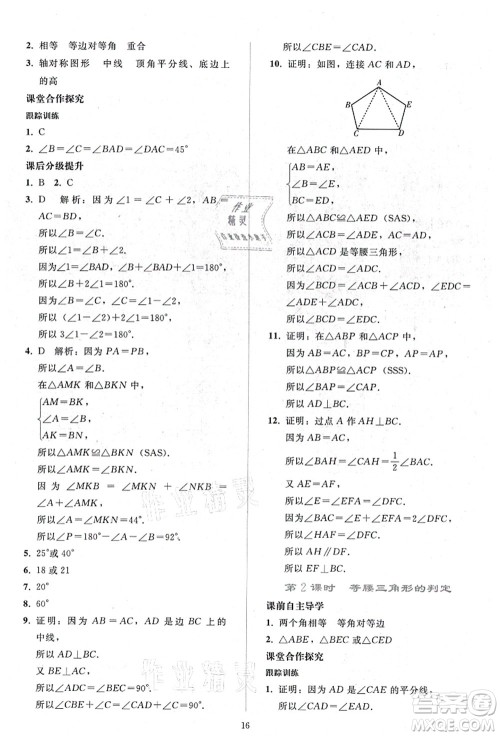 2. 相等　等边对等角　重合
3. 轴对称图形　中线　顶角平分线、底边上
的高
课堂合作探究
跟踪训练
1. C
2. ∠B＝∠C＝∠BAD＝∠DAC＝45°
课后分级提升
1. B　2. C
3. D　解析：因为∠1＝∠C＋∠2，AB＝
AC＝BD.
所以∠B＝∠C，∠1＝∠BAD.
所以∠1＝∠B＋∠2.
因为∠B＋∠1＋∠BAD＝180°，
所以∠B＋2∠1＝180°.
所以∠B＝∠1－∠2.
所以(∠1－∠2)＋2∠1＝180°.
所以3∠1－∠2＝180°.
4. D　解析：因为 PA＝PB，
所以∠A＝∠B.
在△AMK 和△BKN 中，
AM＝BK，
∠A＝∠B，
AK＝BN，
所以△AMK≌△BKN (SAS).
所以∠AMK＝∠BKN.
因为∠MKB＝∠MKN＋∠NKB＝
∠A＋∠AMK，
所以∠A＝∠MKN＝44°.
所以∠P＝180°－∠A－∠B＝92°.
5. 25°或40°
6. 18 或 21
7. 20°
8. 60°
9. 证明：因为 AB＝AC，AD 是 BC 边上的
中线，
所以 AD⊥BC.
又 BE⊥AC，
所以∠ADC＝∠BEC＝90°.
所以∠CBE＝90°－∠C，
∠CAD＝90°－∠C.
所以∠CBE＝∠CAD.
又∠CAD＝∠BAD，
所以∠CBE＝∠BAD.
10. 证明：如图，连接 AC 和 AD.
A
B
E
C
D
在△ABC 和△AED 中，
AB＝AE，
∠B＝∠E，
BC＝ED，
所以△ABC≌△AED (SAS).
所以 AC＝AD.
所以△ACD 是等腰三角形.
所以∠ACD＝∠ADC.
因为∠BCA＋∠ACD＝∠EDA＋
∠ADE，
所以∠BCD＝∠EDC.
11. 证明：在△ABP 和△ACP 中，
AB＝AC，BP＝CP，AP＝AP，
所以△ABP≌△ACP (SSS).
所以∠BAP＝∠CAP.
所以 AD⊥BC.
12. 证明：过点 A 作 AH⊥BC.
所以∠BAH＝∠CAH＝1/2∠BAC.
又 AE＝AF，
所以∠E＝∠EFA＝∠CFD.
所以∠BAC＝∠E＋∠EFA＝2∠EFA.
所以∠CAH＝∠EFA.
所以 EF∥AH.
所以 EF⊥BC.
第 2 课时　等腰三角形的判定
课前自主导学
1. 两个角相等　等角对等边
2. △ABE，△BCE，△ABC
课堂合作探究
跟踪训练
1. 证明：因为 AD 是∠CAE 的平分线，
所以∠EAD＝∠CAD.
16
作业
精灵